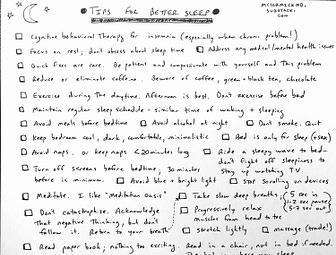 TIPS FOR BETTER SLEEP
MCCORMICKMD.
SUBSTACK.
COM
Cognitive behavioral therapy for insomnia (especially when chronic problem!)
Focus on rest; don't obsess about sleep time Address any medical/mental health issues
Quick fixes are rare. Be patient and compassionate with yourself and this problem
Reduce or eliminate caffeine. Beware of coffee, green + black tea, chocolate
Exercise during the daytime. Afternoon is best. Don't exercise before bed
Maintain regular sleep schedule - similar time of waking + sleeping
Avoid meals before bedtime Avoid alcohol at night Don't smoke. Quit
Keep bedroom cool, dark, comfortable, minimalistic Bed is only for sleep (+sex)
Avoid naps. or keep naps <20 minutes long Ride a sleepy wave to bed-
don't fight off sleepiness to
Turn off screens before bedtime; 30 minutes stay up watching TV.
before is minimum. Avoid blue + bright light Stop Scrolling on devices
Meditate. I like "Meditation oasis" Take slow deep breaths. 5 sec in
1-2 sec pause
5-7 sec out
Don't catastrophize. Acknowledge Progressively relax
that negative thinking, but don't muscles from head to toe
follow it. Return to your breath Stretch lightly massage (trade!)
Read paper book; nothing too exciting. Read in a chair, not in bed if needed.